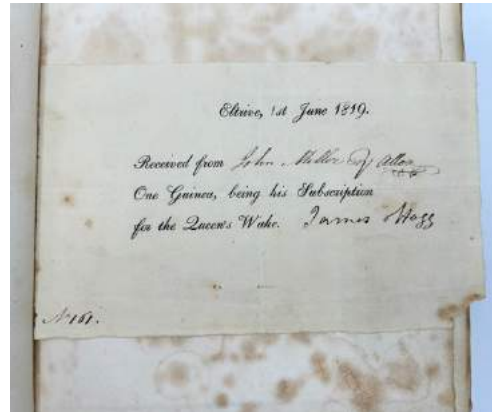 Eltrive, 1st June 1819.
Received from John Miller Esq Alloa
One Guinea, being his Subscription
for the Queen's Wake. James Hogg
No 161.